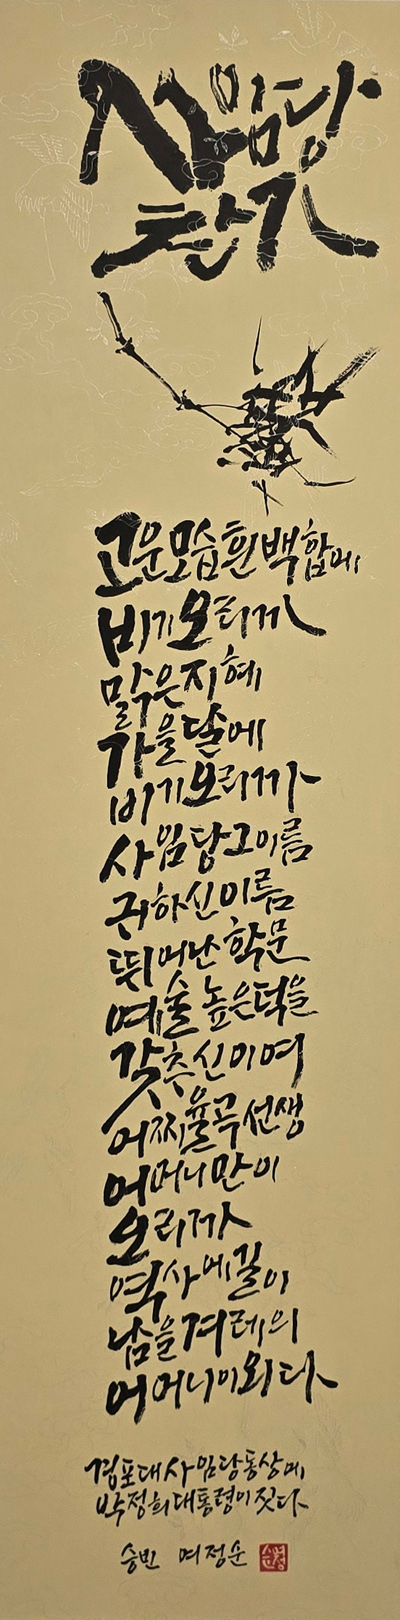 사임당
찬가
고운모습흰백합에
비기오리까
맑은지혜
가을달에
비기오리까
사임당그이름
귀하신이름
뛰어난학문
예술높은덕을
갖추신이여
어찌율곡선생
어머니만이
오리까
역사에길이
남을겨레의
어머니이외다
경포대사임당동상에
박정희대통령이짓다
승빈 여정순